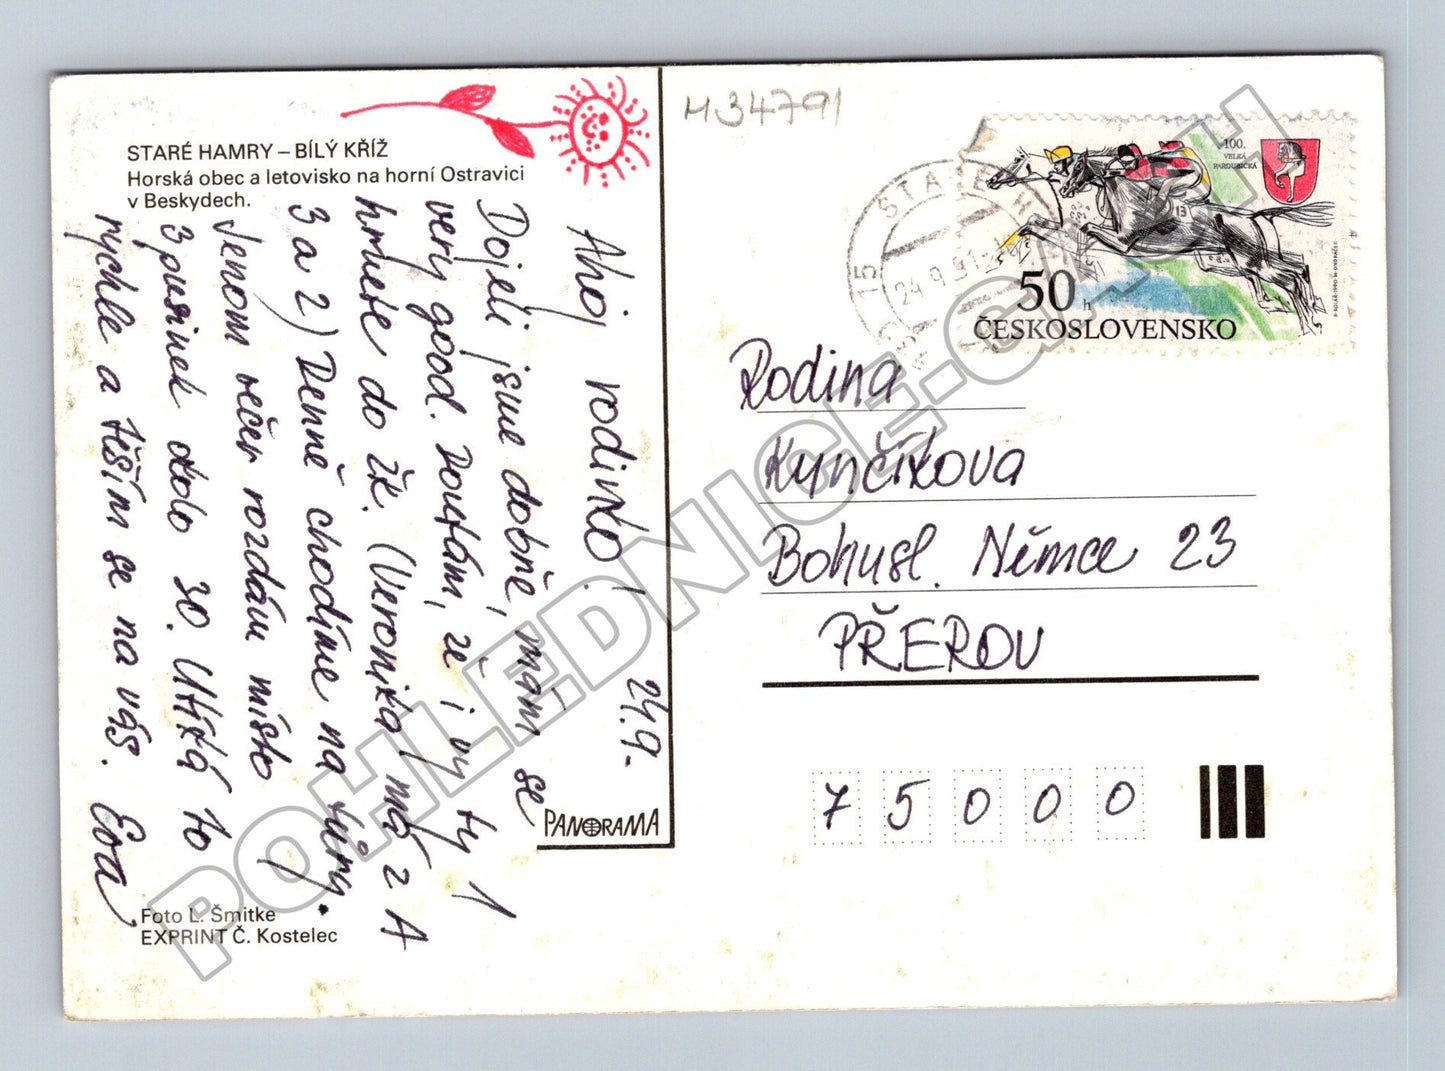 STARÉ HAMRY – BÍLÝ KŘÍŽ
Horská obec a letovisko na horní Ostravici
v Beskydech.
Ahoj rodinko! 24.9.
Dojeli jsme dobře, mám se
very good. Doufám, že i vy ty 1
hrnete do žk. (Veronika má 2 A
3 a 2) Denně chodíme na túry.
Jenom večer rozdám místo
3 pusinek okolo 30. Utíká to
rychle a těším se na vás. Eva
Foto L. Šmitke
EXPRINT Č. Kostelec
PANORAMA
M34791
STARÉ H
15
24.9.91
100.
VELKÁ
PARDUBICKÁ
13
50 h
ČESKOSLOVENSKO
Rodina
Kunčíkova
Bohusl. Němce 23
PŘEROV
75000
POHLEDNICE-CASH